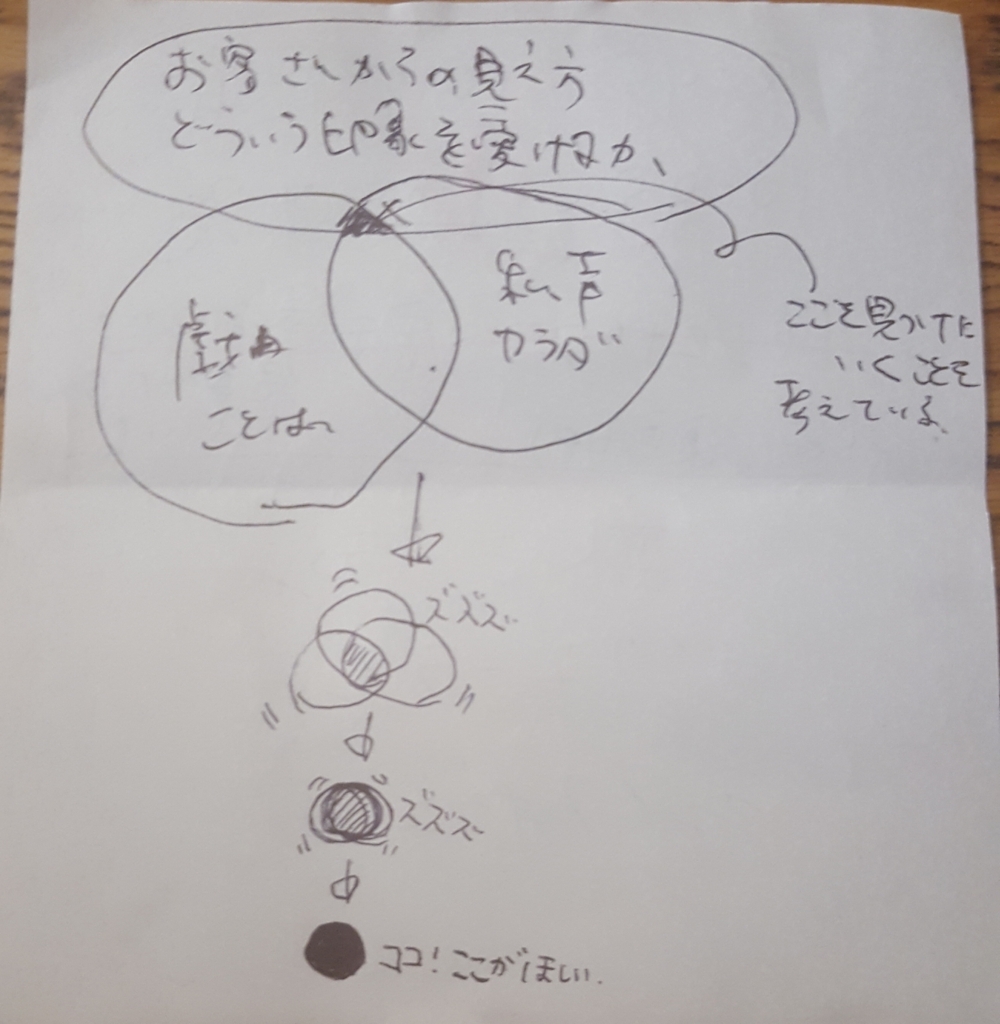 お客さんからの見え方
どういう印象を受けるか、
戯曲
ことば
私、声
カラダ
ここを見つけに
いくことを
考えている。
ズズズ
ズズズ
ココ!ここがほしい.